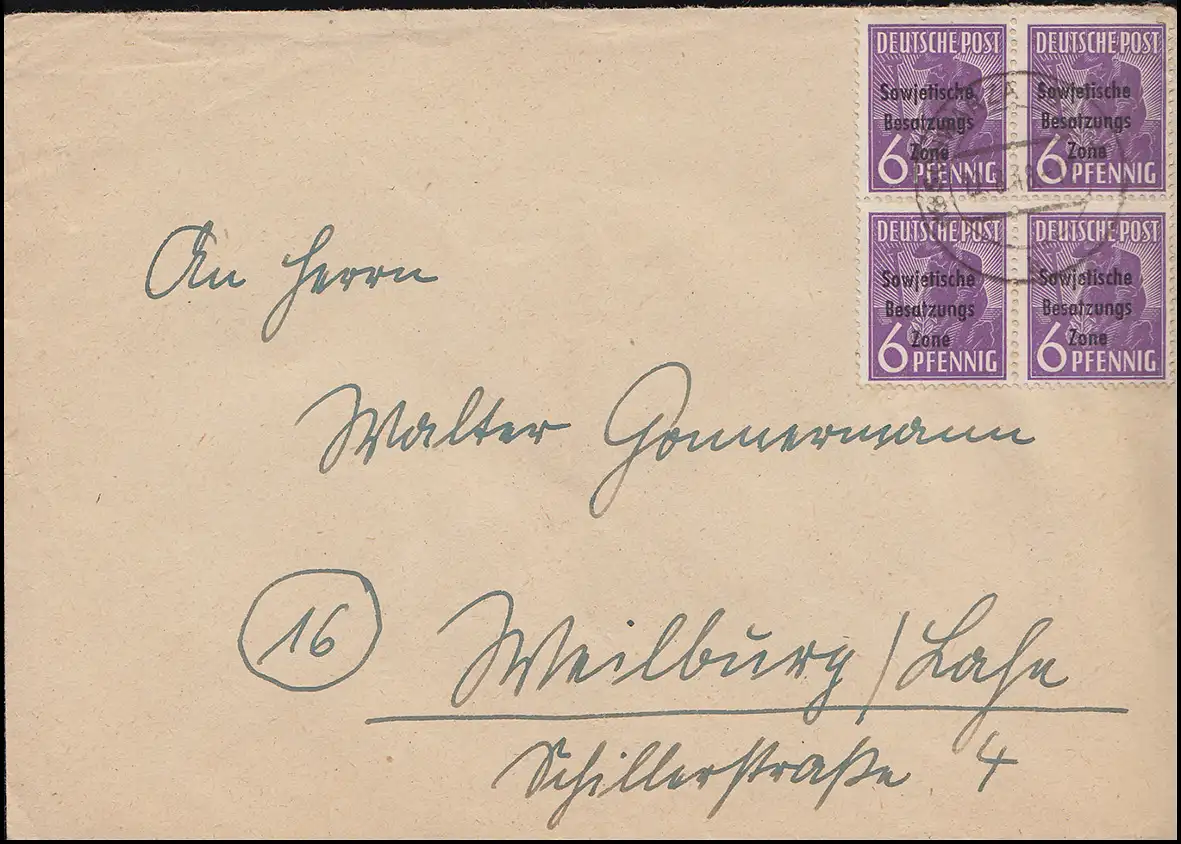 DEUTSCHE POST DEUTSCHE POST
Sowjetische Sowjetische
Besatzungs Besatzungs
Zone Zone
6 PFENNIG 6 PFENNIG
DEUTSCHE POST DEUTSCHE POST
Sowjetische Sowjetische
Besatzungs Besatzungs
Zone Zone
6 PFENNIG 6 PFENNIG
An Herrn
Walter Gonnermann
16 Weilburg/Lahn
Schillerstraße 4